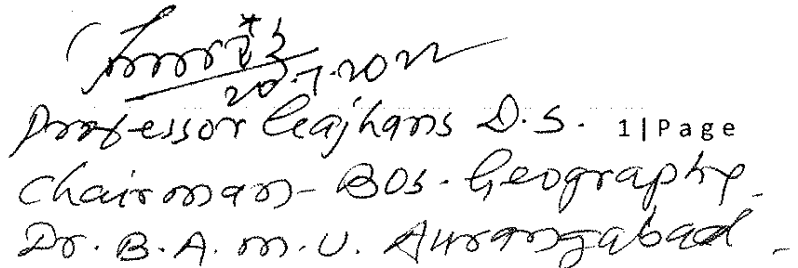 20.7.2022
Professor Gajhans D.S. 1|Page
Chairman - BOS - Geography.
Dr. B. A. M. U. Aurangabad.